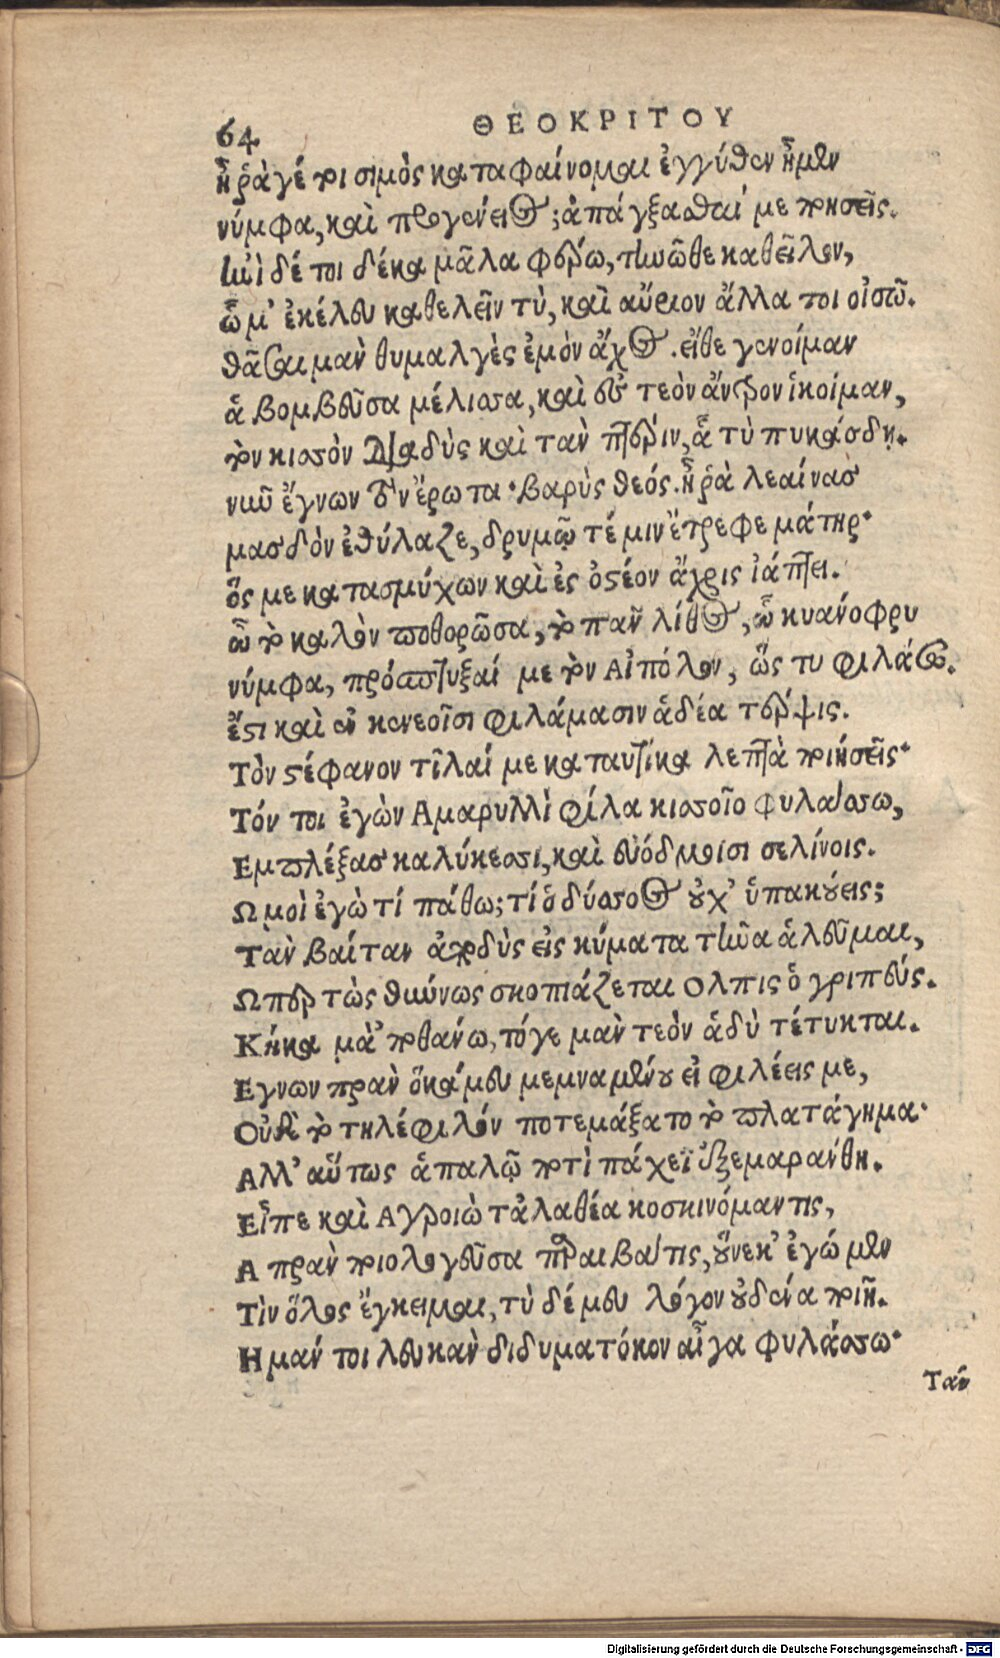 64
ΘΕΟΚΡΙΤΟΥ
ἦ ῥὰ γέ τοι σιμὸς καταφαίνομαι ἐγγύθεν ἦμεν
νύμφα, καὶ προγένειος; ἀπάγξασθαί με ποησεῖς.
ἠνὶ δέ τοι δέκα μᾶλα φέρω, τηνῶθε καθεῖλον,
ὧ μ' ἐκέλευ καθελεῖν τὺ, καὶ αὔριον ἄλλα τοι οἰσῶ.
θᾶσαι μὰν θυμαλγὲς ἐμὸν ἄχος. εἴθε γενοίμαν
ἁ βομβεῦσα μέλισσα, καὶ ἐς τεὸν ἄντρον ἱκοίμαν,
τὸν κισσὸν διαδὺς καὶ τὰν πτέριν, ᾇ τὺ πυκάσδῃ.
νῦν ἔγνων τὸν ἔρωτα· βαρὺς θεός. ἦ ῥὰ λεαίνας
μασδὸν ἐθύλαζε, δρυμῷ τέ μιν ἔτρεφε μάτηρ·
ὅς με κατασμύχων καὶ ἐς ὀστέον ἄχρις ἰάπτει.
ὦ τὸ καλὸν ποθορῶσα, τὸ πᾶν λίθος, ὦ κυανόφρυ
νύμφα, πρόσπτυξαί με τὸν Αἰπόλον, ὥς τυ φιλάσω.
ἔστι καὶ ἐν κενεοῖσι φιλάμασιν ἁδέα τέρψις.
Τὸν στέφανον τῖλαί με καταυτίκα λεπτὰ ποιήσεῖς·
Τόν τοι ἐγὼν Αμαρυλλὶ φίλα κισσοῖο φυλάσσω,
Εμπλέξας καλύκεσσι, καὶ εὐόδμοισι σελίνοις.
Ω μοὶ ἐγὼ τί πάθω; τί ὁ δύσσοος οὐχ' ὑπακούεις;
Τὰν βαίταν ἀποδὺς εἰς κύματα τηνῶα ἁλεῦμαι,
Ωπερ τὼς θύννως σκοπιάζεται Ολπις ὁ γριπεύς.
Κήκα μὰ 'ποθάνω, τόγε μὰν τεὸν ἁδὺ τέτυκται.
Εγνων πρὰν ὅκα μευ μεμναμένου εἰ φιλέεις με,
Οὐδὲ τὸ τηλέφιλόν ποτεμάξατο τὸ πλατάγημα·
Αλλ' αὕτως ἁπαλῷ ποτὶ πάχεϊ ἐξεμαράνθη.
Εἶπε καὶ Αγροιὼ τἀλαθέα κοσκινόμαντις,
Α πρὰν ποιολογεῦσα παραιβάτις, οὕνεκ' ἐγώ μεν
Τὶν ὅλος ἔγκειμαι, τὺ δέ μευ λόγον οὐδένα ποιῇ.
Η μάν τοι λευκὰν διδυματόκον αἶγα φυλάσσω·
Τάν
Digitalisierung gefördert durch die Deutsche Forschungsgemeinschaft - DFG